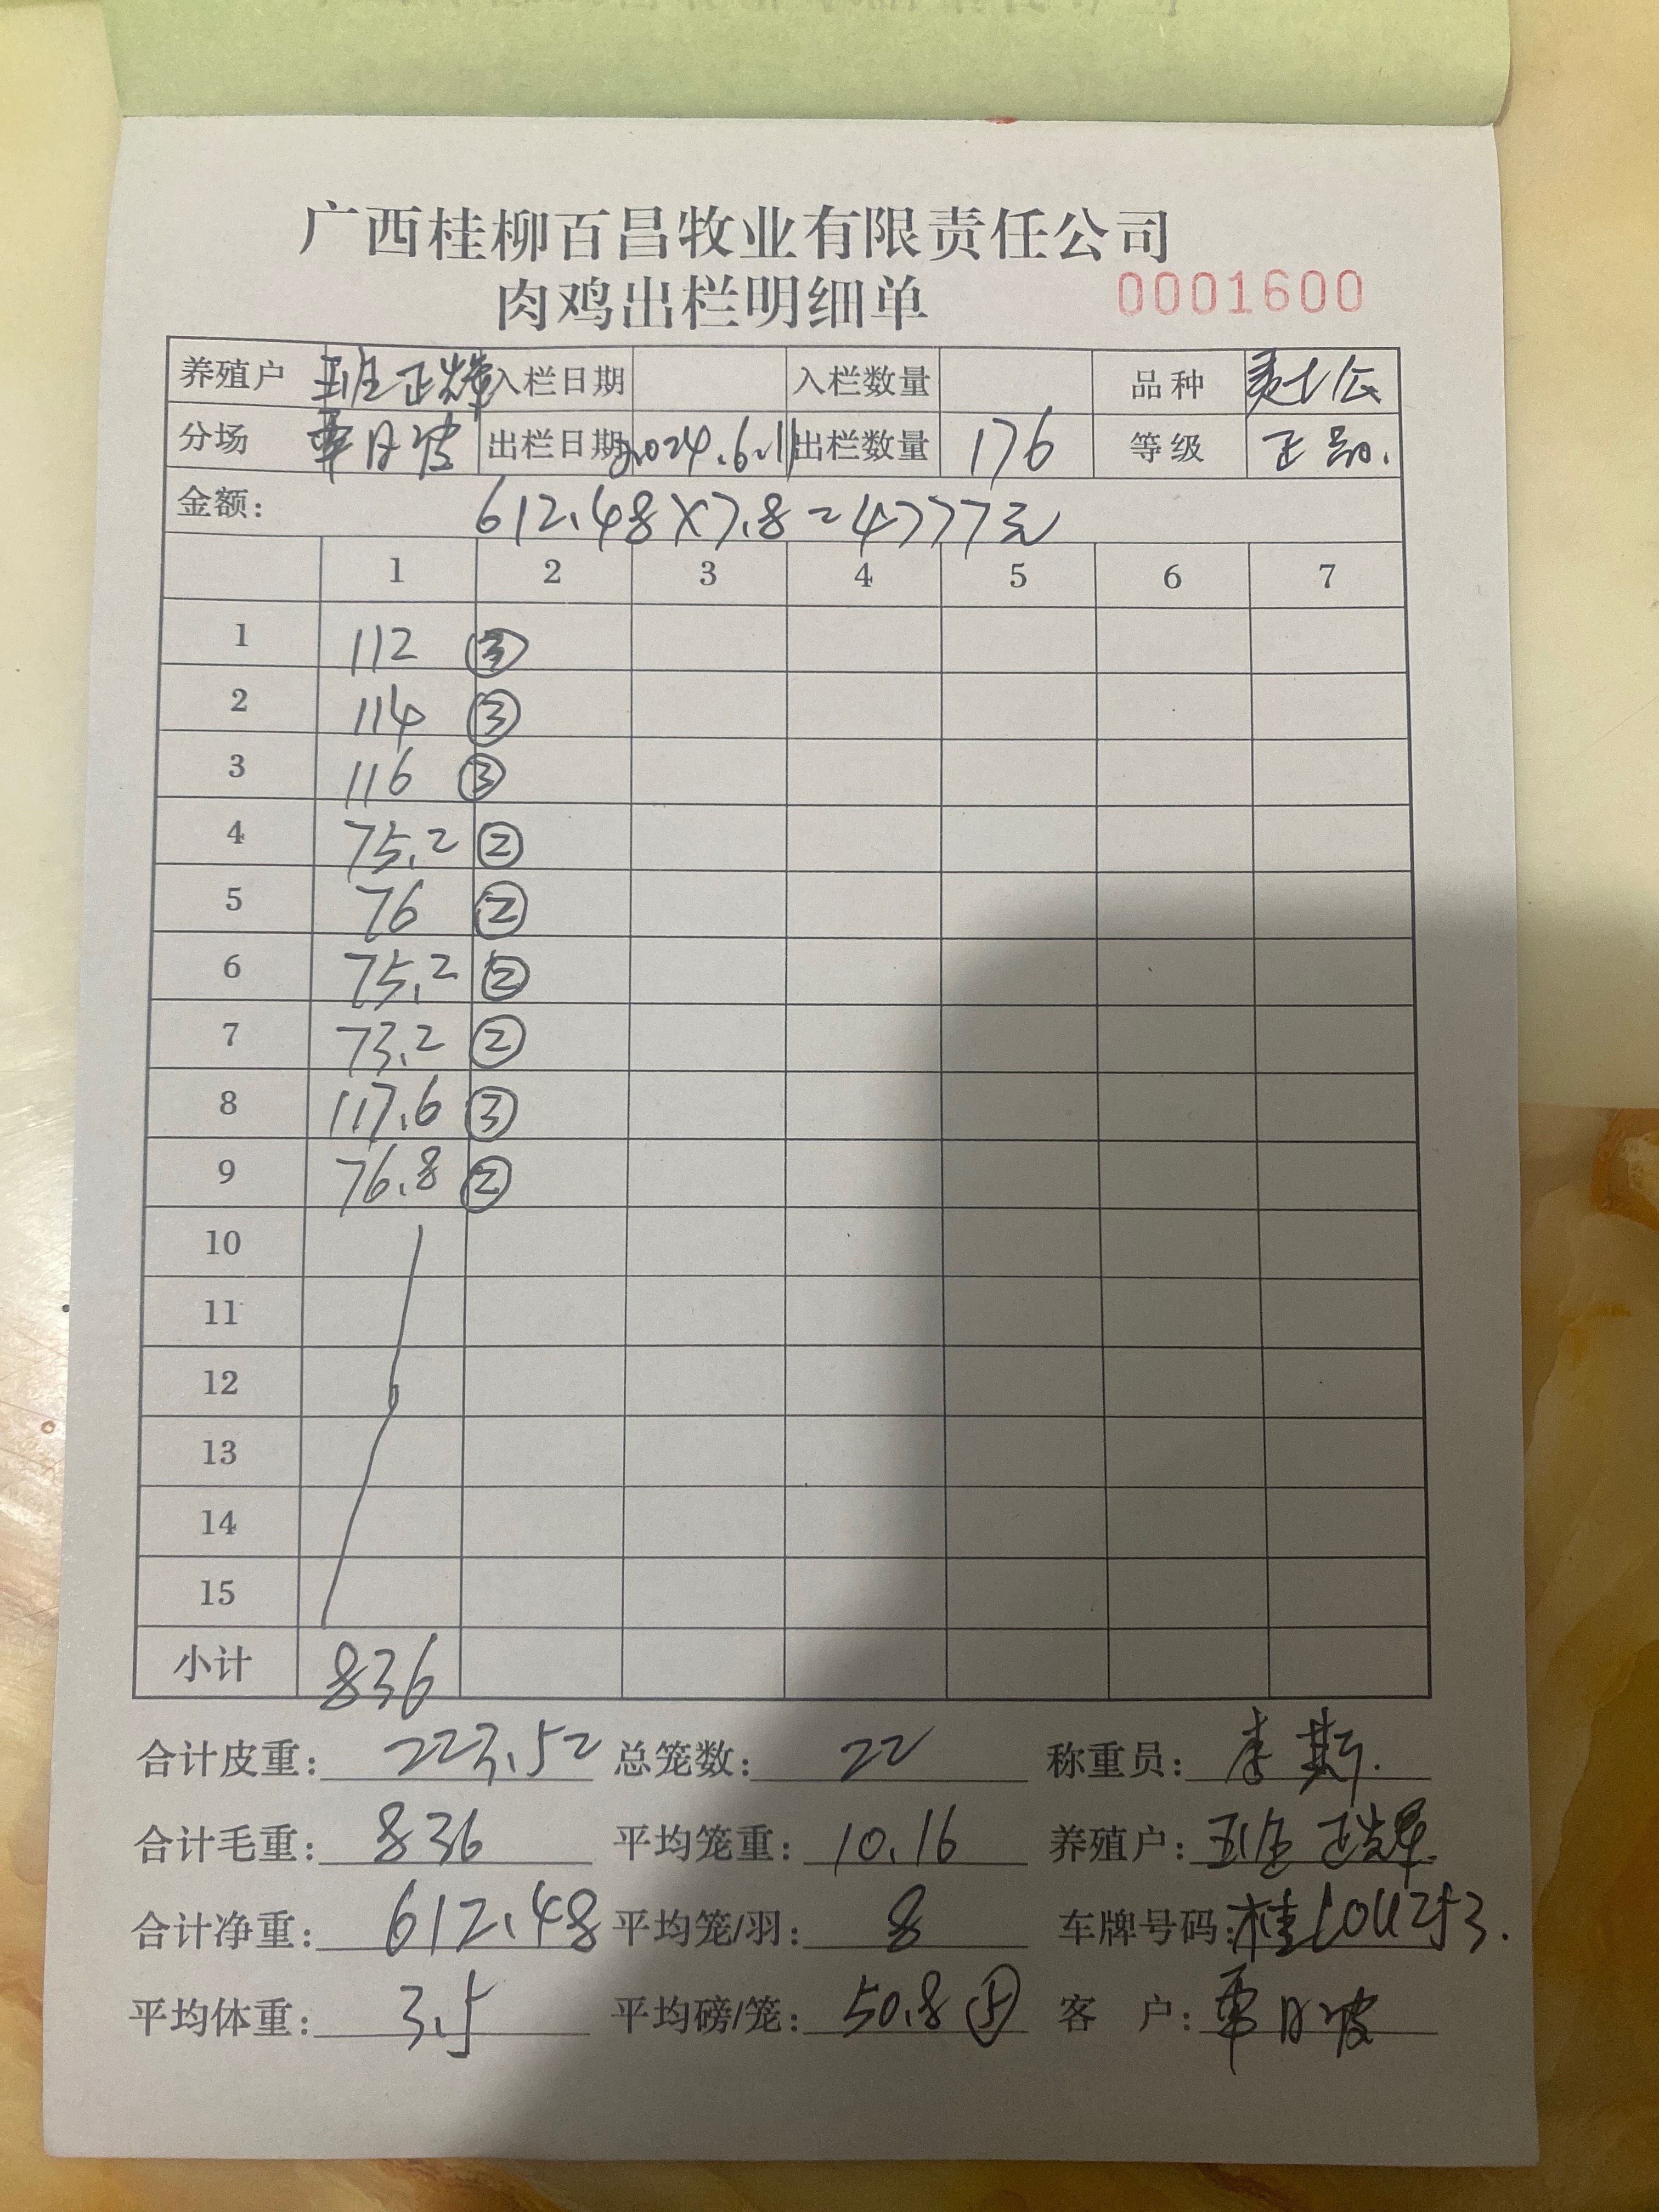 广西桂柳百昌牧业有限责任公司
肉鸡出栏明细单 0001600
养殖户 班正辉 入栏日期 入栏数量 品种
分场 覃日波 出栏日期 2024.6.11 出栏数量 176 等级 正品.
金额: 612.48×7.8=4777元
1 2 3 4 5 6 7
1 112 ③
2 114 ③
3 116 ③
4 75.2 ②
5 76 ②
6 75.2 ②
7 73.2 ②
8 117.6 ③
9 76.8 ②
10
11
12
13
14
15
小计 836
合计皮重: 223.52 总笼数: 22 称重员: 李斯.
合计毛重: 836 平均笼重: 10.16 养殖户: 班正辉
合计净重: 612.48 平均笼/羽: 8 车牌号码:
平均体重: 3.5 平均磅/笼: 50.8⑤ 客 户: 覃日波